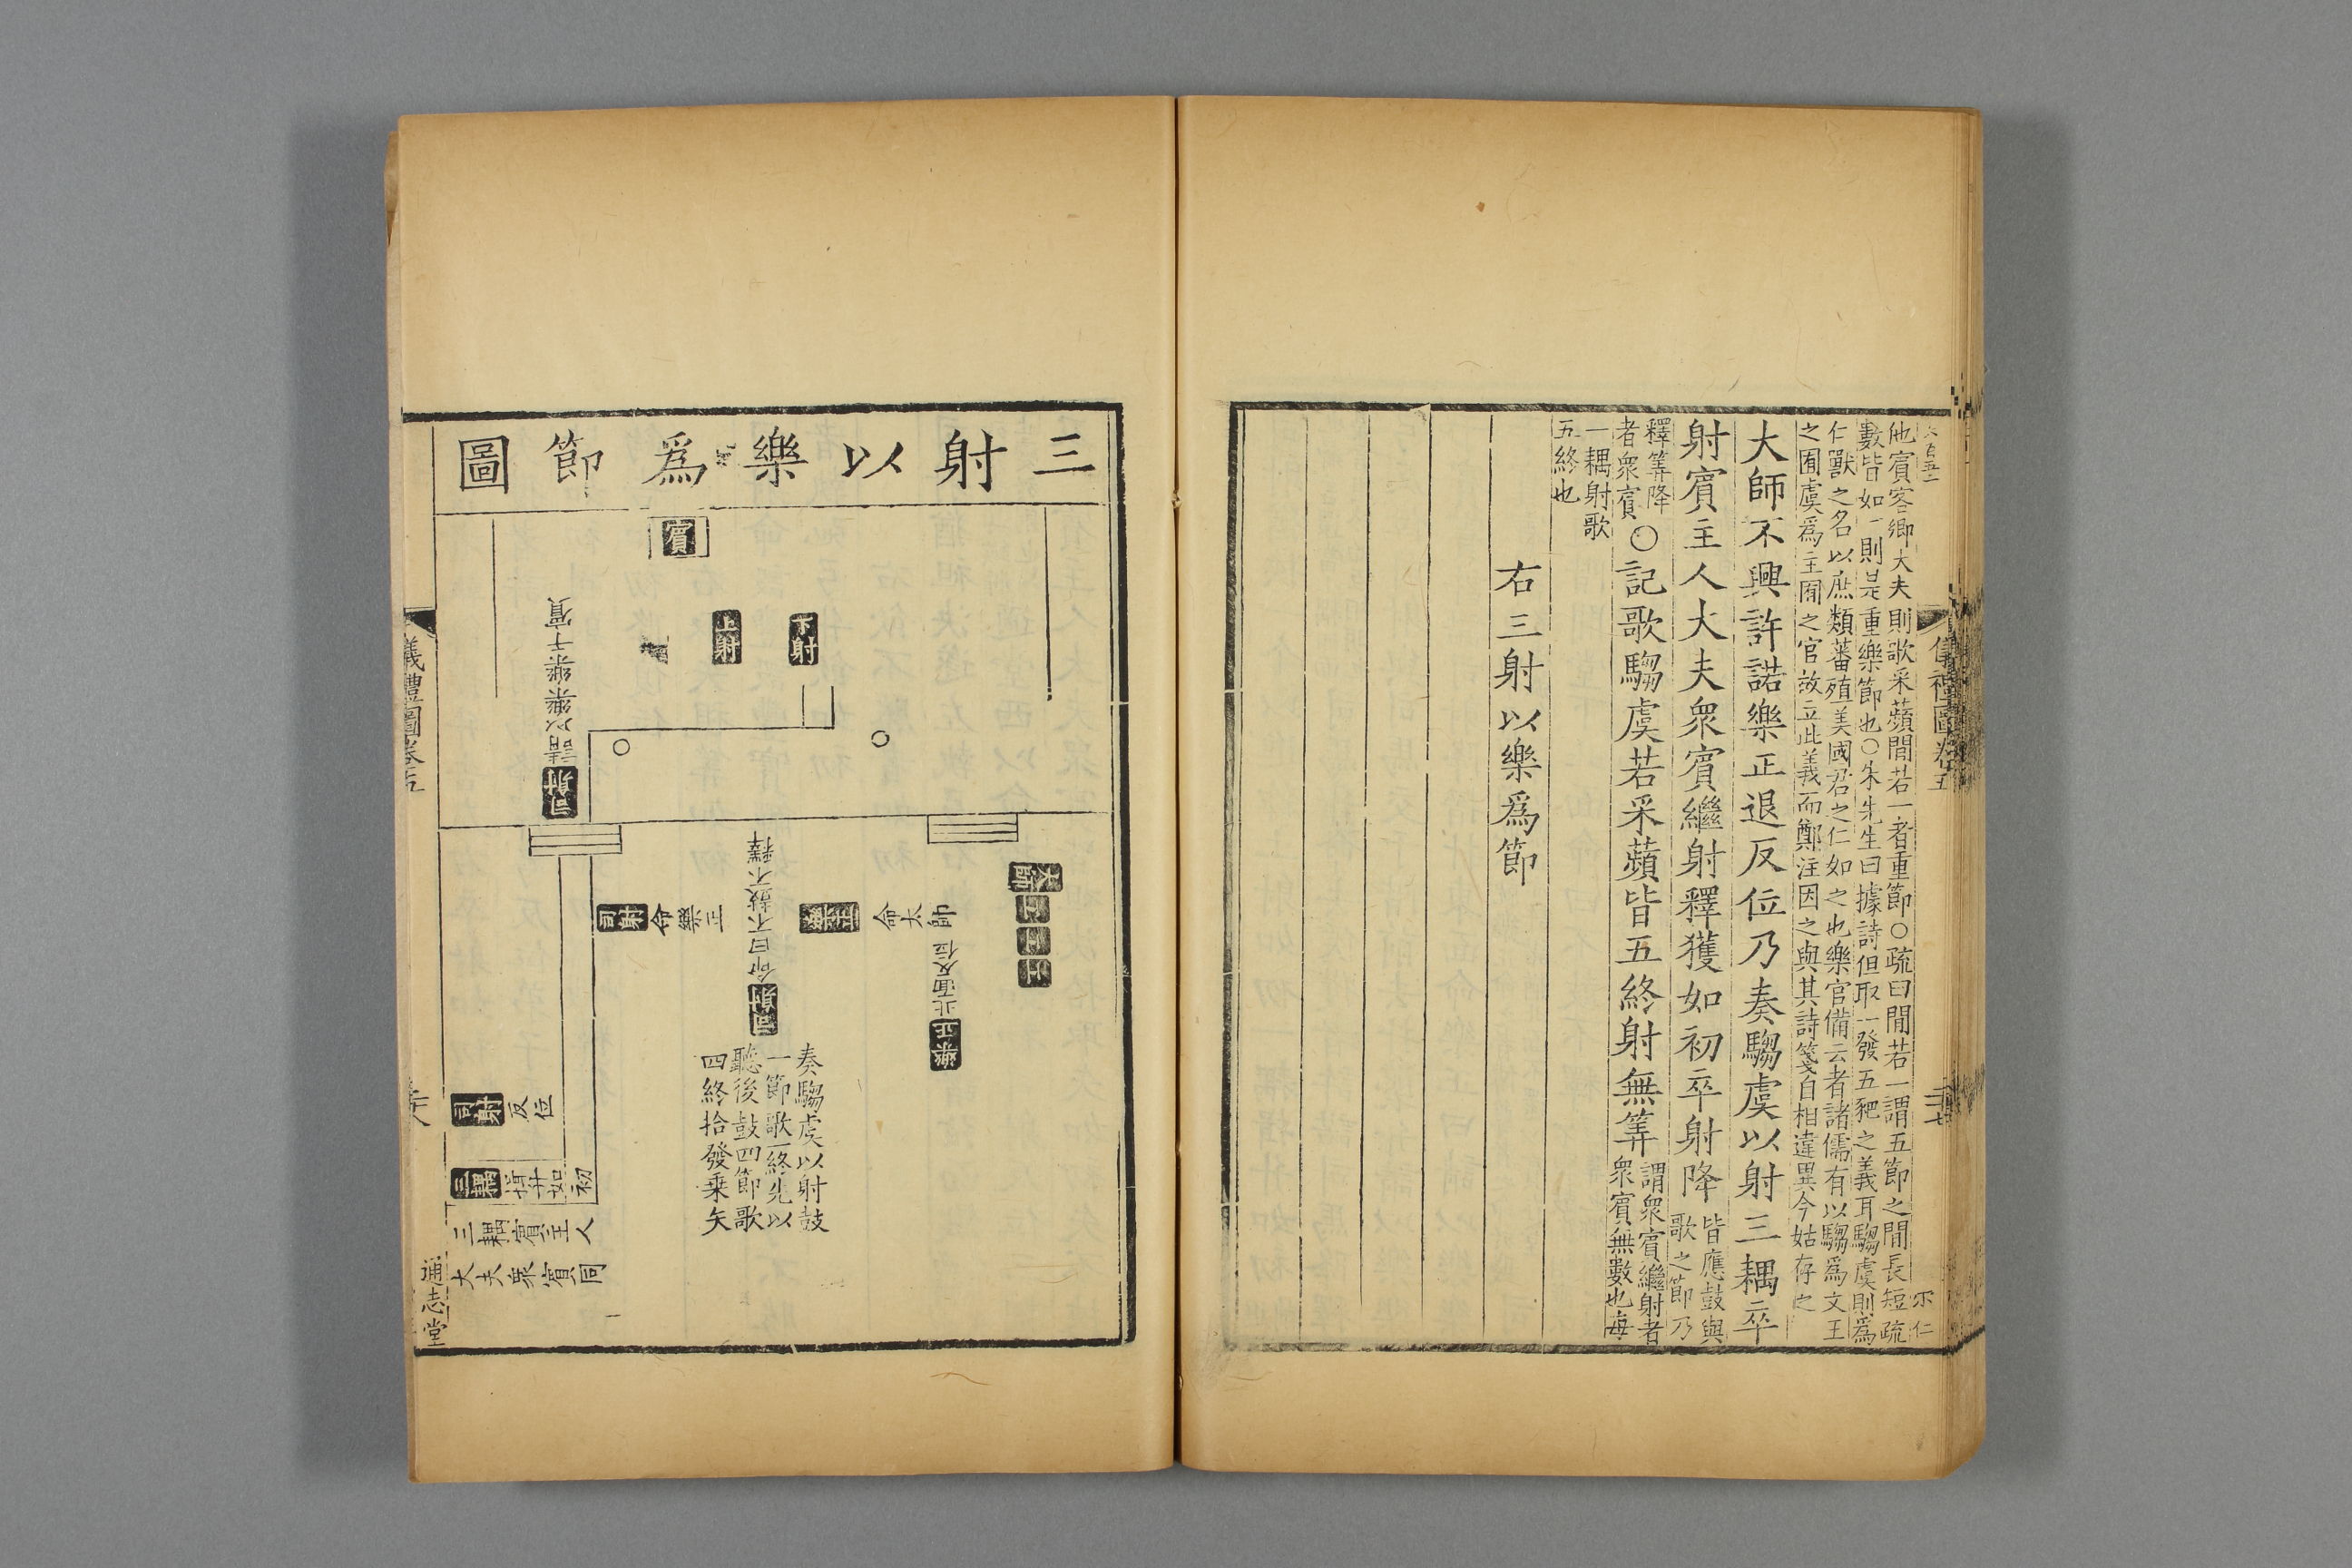 他賓客鄉大夫則歌采蘋間若一者重節○疏曰間若一謂五節之間長短疏
數皆如一則是重樂節也○朱先生曰據詩但取一發五豝之義耳騶虞則為
仁獸之名以庶類蕃殖美國君之仁如之也樂官備云者諸儒有以騶為文王
之囿虞為主囿之官故立此義而鄭注因之與其詩箋自相違異今姑存之
大師不興許諾樂正退反位乃奏騶虞以射三耦卒
射賓主人大夫衆賓繼射釋獲如初卒射降
皆應鼓與
歌之節乃
釋筭降
者衆賓
○記歌騶虞若采蘋皆五終射無筭
謂衆賓繼射者
衆賓無數也每
一耦射歌
五終也
右三射以樂爲節
儀禮圖卷五
三射以樂爲節圖
賓
上射
下射
司射
請以樂樂于賓
大師
工
工
司射
命樂正
樂正
命大師
司射
命曰不鼓不釋
樂正
北面反位
奏騶虞以射鼓
一節歌一終先以
聽後鼓四節歌
四終拾發乗矢
司射
反位
三耦
揖升如初
三耦賓主人
大夫衆賓同
儀禮圖卷五
通志堂